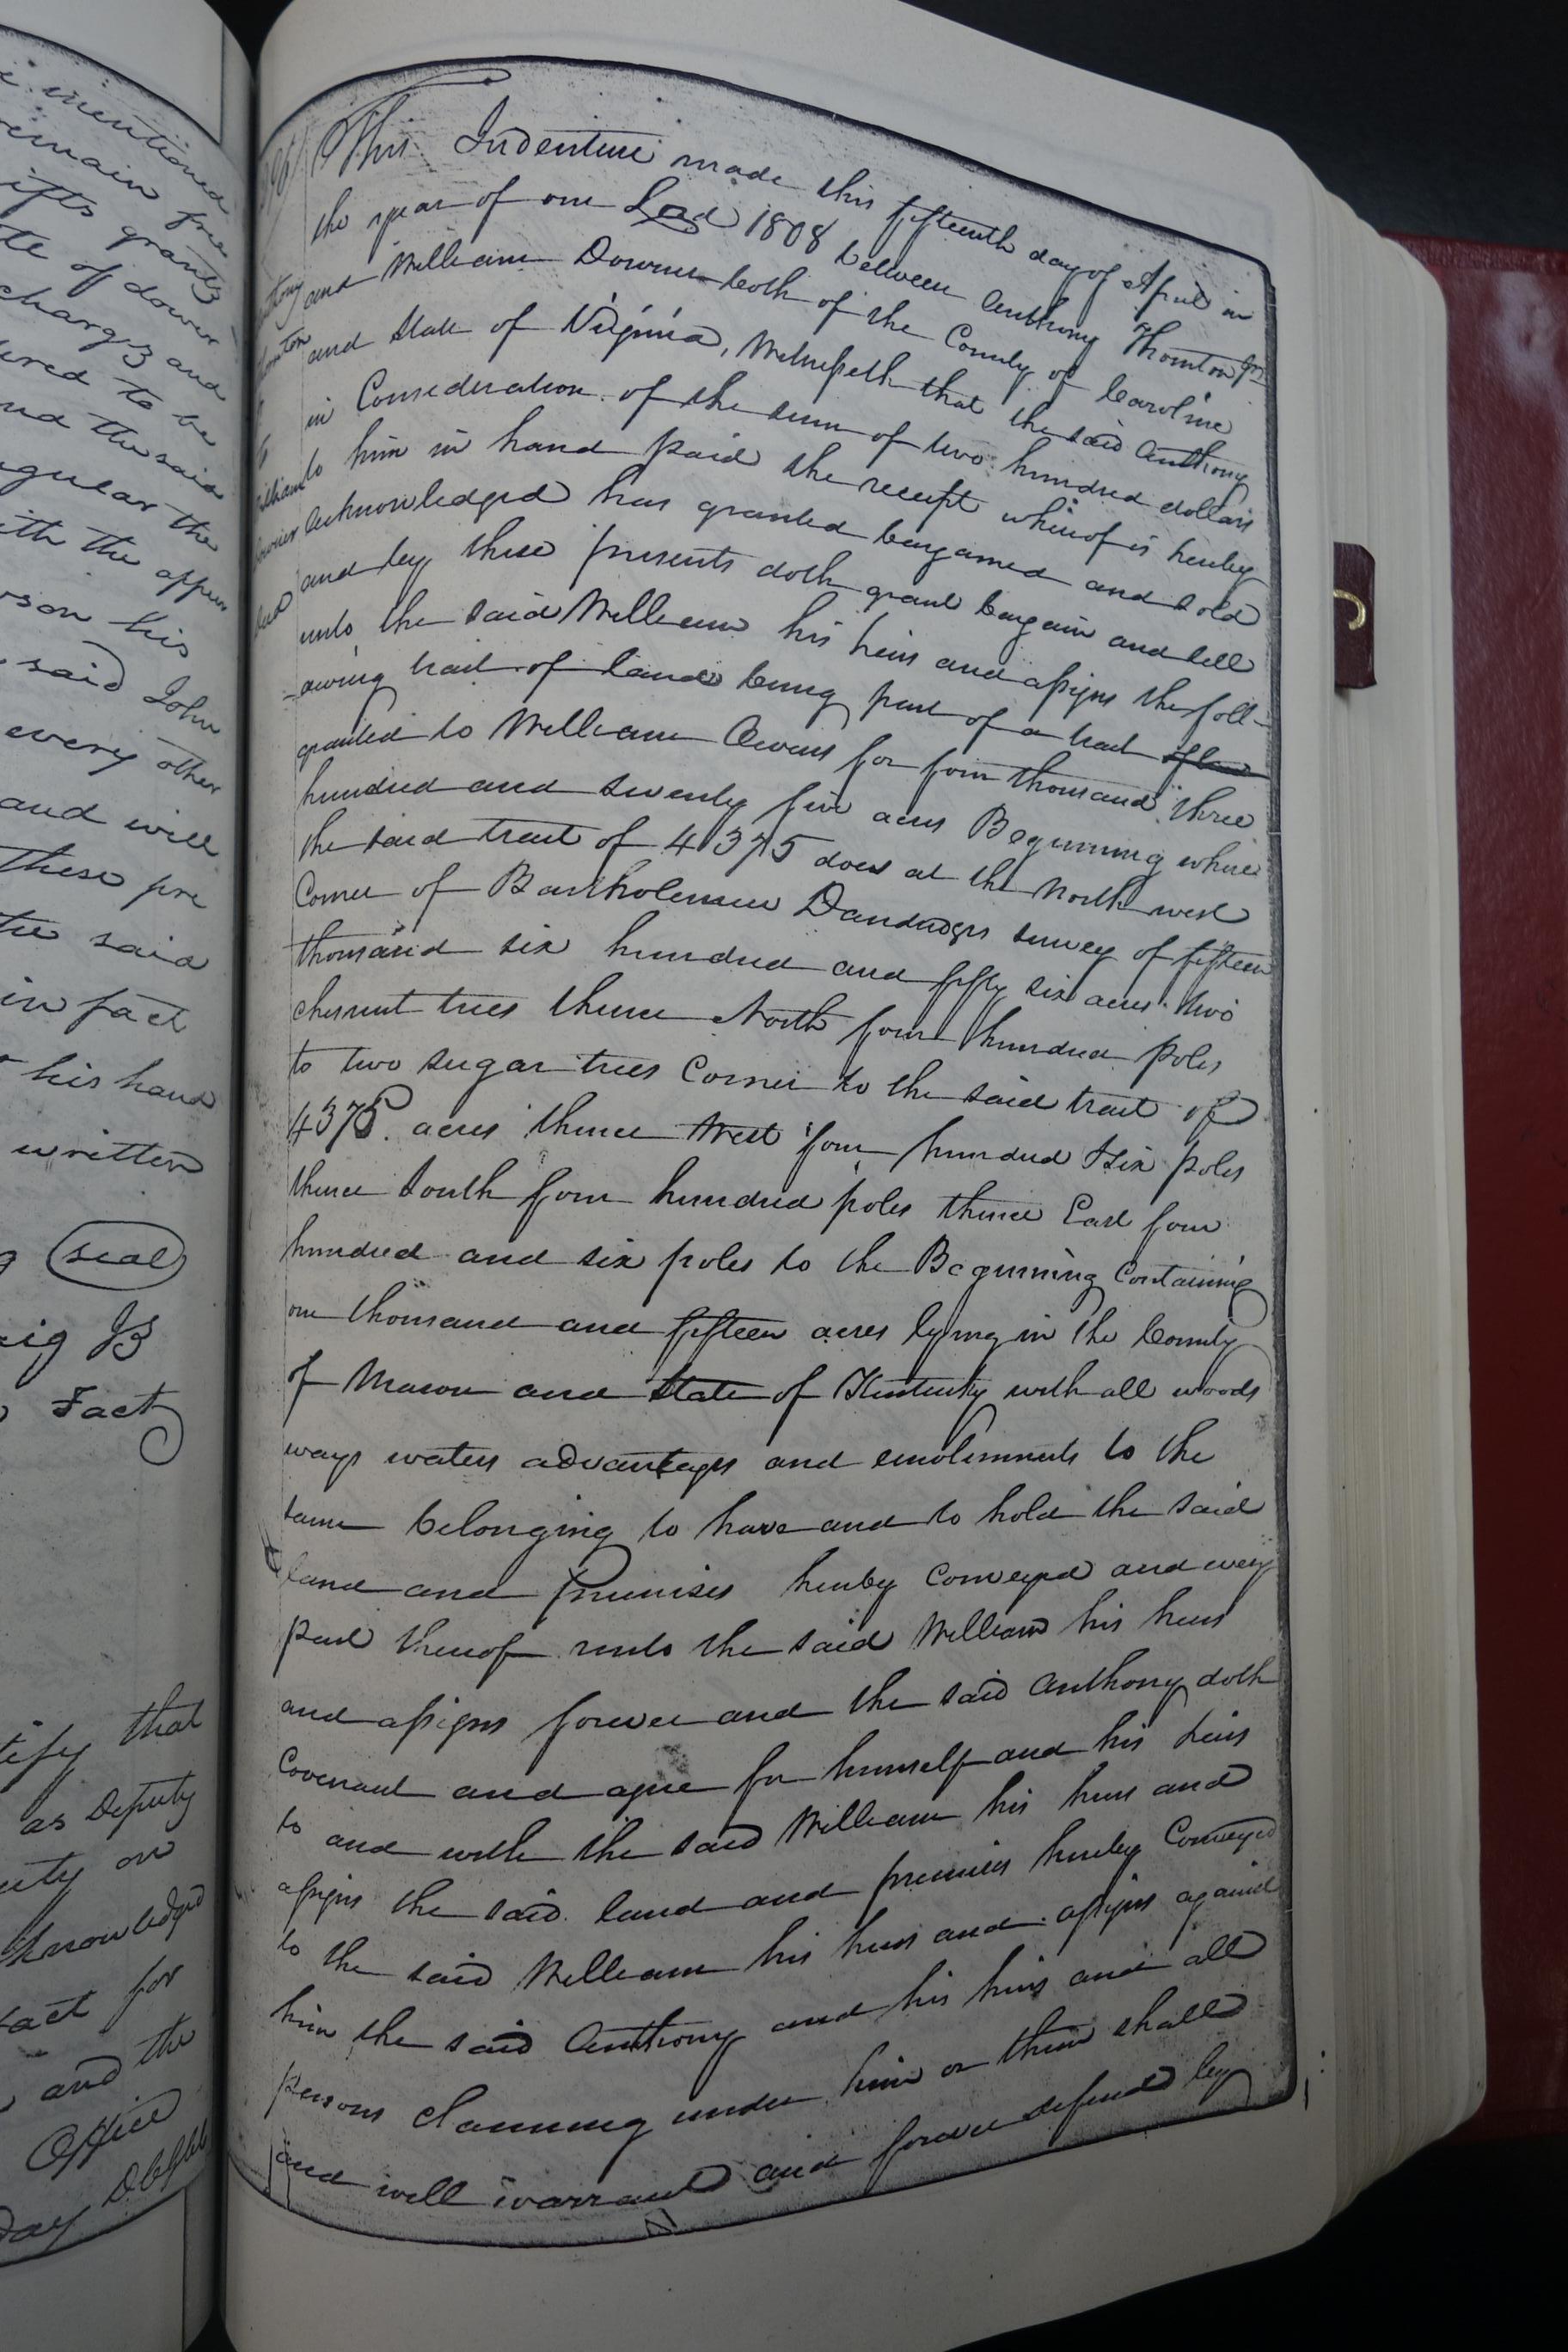 mentioned
remain free
gifts grants
of dower
charges and
to be
and the said
the
with the appur
son his
said John
every other
and will
these pre
the said
in fact
his hand
written
seal
Fact
tify that
as Deputy
on
knowledged
fact for
and the
Office
day
This Indenture made this fifteenth day of April in
the year of our Lord 1808 between Anthony Thornton Jr
and William Downer both of the County of Caroline
and State of Virginia, Witnesseth that the said Anthony
in Consideration of the sum of two hundred dollars
to him in hand paid the receipt whereof is hereby
acknowledged has granted bargained and sold
and by these presents doth grant bargain and sell
unto the said William his heirs and assigns the foll-
-owing tract of land being part of a tract of land
granted to William Owens for four thousand three
hundred and seventy five acres Beginning where
the said tract of 4375 does at the North west
Corner of Bartholemew Dandridges survey of fifteen
thousand six hundred and fifty six acres two
chesnut trees thence North four hundred poles
to two sugar trees Corner to the said tract of
4375 acres thence West four hundred & six poles
thence South four hundred poles thence East four
hundred and six poles to the Beginning Containing
one thousand and fifteen acres lying in the County
of Mason and State of Kentucky with all woods
ways waters advantages and emoluments to the
same belonging to have and to hold the said
land and Premises hereby Conveyed and every
part thereof unto the said William his heirs
and assigns forever and the said Anthony doth
Covenant and agree for himself and his heirs
to and with the said William his heirs and
assigns the said land and premises hereby Conveyed
to the said William his heirs and assigns against
him the said Anthony and his heirs and all
persons claiming under him or them shall
and will warrant and forever defend by